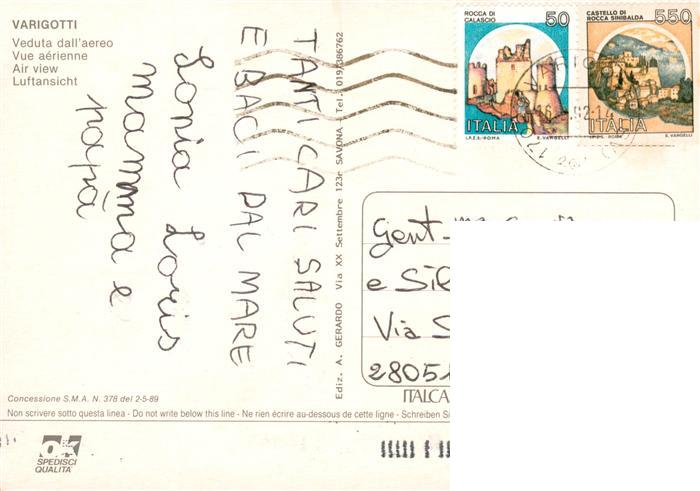 VARIGOTTI
Veduta dall'aereo
Vue aérienne
Air view
Luftansicht
TANTI CARI SALUTI
E BACI DAL MARE
Sonia Loris
mamma e
papà
Ediz. A. GERARDO Via XX Settembre 123r SAVONA - Tel. 019/386762
ROCCA DI
CALASCIO
50
ITALIA
I.P.Z.S.-ROMA E. VANGELLI
CASTELLO DI
ROCCA SINIBALDA
550
ITALIA
I.P.Z.S. ROMA E. VANGELLI
Gent.
e Sil
Via S
28051
ITALCA
Concessione S.M.A. N. 378 del 2-5-89
Non scrivere sotto questa linea - Do not write below this line - Ne rien écrire au-dessous de cette ligne - Schreiben Si
ok
SPEDISCI
QUALITÀ